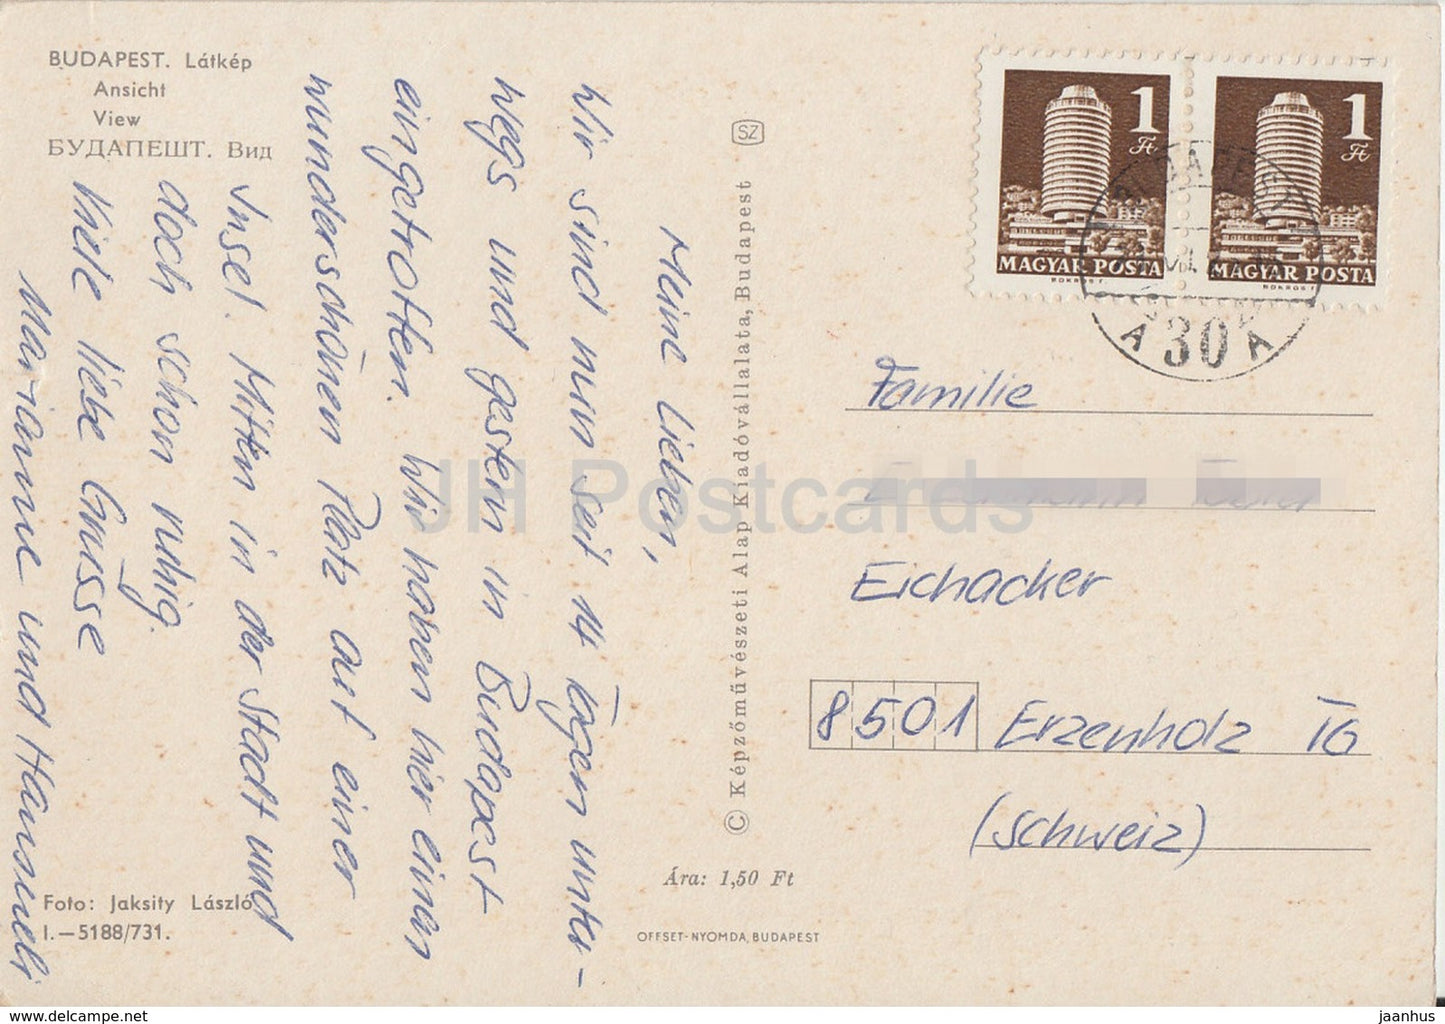 BUDAPEST. Látkép
Ansicht
View
БУДАПЕШТ. Вид
Meine Lieben,
Wir sind nun seit 14 Tagen unter-
wegs und gestern in Budapest
eingetroffen. Wir haben hier einen
wunderschönen Platz auf einer
Insel. Mitten in der Stadt und
doch schon ruhig.
Viele liebe Grüsse
Marianne und Hansueli
Foto: Jaksity László
I.—5188/731.
SZ
© Képzőművészeti Alap Kiadóvállalata, Budapest
Ára: 1,50 Ft
OFFSET-NYOMDA, BUDAPEST
1 Ft
MAGYAR POSTA
BOKROS F.
1 Ft
MAGYAR POSTA
BOKROS F.
BUDAPEST
A 30 A
Familie
Eichacker
8501 Erzenholz TG
(Schweiz)
JH Postcards
www.delcampe.net
jaanhus